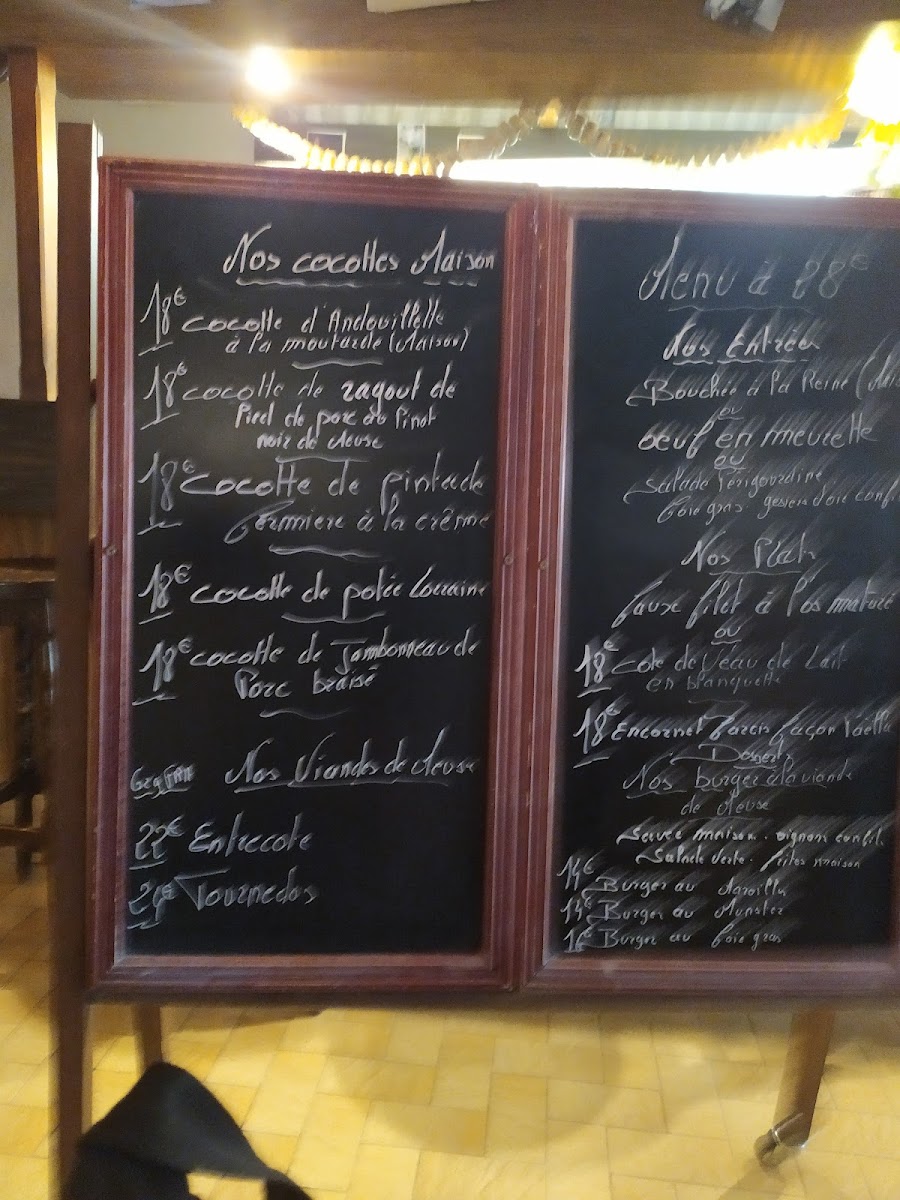 Nos cocottes Maison
18€ cocotte d'Andouillette
à la moutarde (Maison)
18€ cocotte de ragout de
Pied de porc au Pinot
noir de Meuse
18€ cocotte de pintade
fermiere à la crème
18€ cocotte de potée Lorraine
18€ cocotte de Jambonneau de
Porc braisé
Nos Viandes de Meuse
22€ Entrecote
24€ Tournedos
Menu à 28€
Nos Entrées
Bouchée à la Reine
ou
oeuf en meurette
ou
Salade Périgourdine
foie gras. gesier d'oie confit
Nos Plats
faux filet à l'os maturé
ou
18€ Cote de Veau de Lait
en blanquette
18€ Encornet farcis façon Paëlla
Desserts
Nos burger à la viande
de Meuse
Sauce maison. oignons confit
Salade verte. frites maison
14€ Burger au Maroilles
14€ Burger au Munster
16€ Burger au foie gras